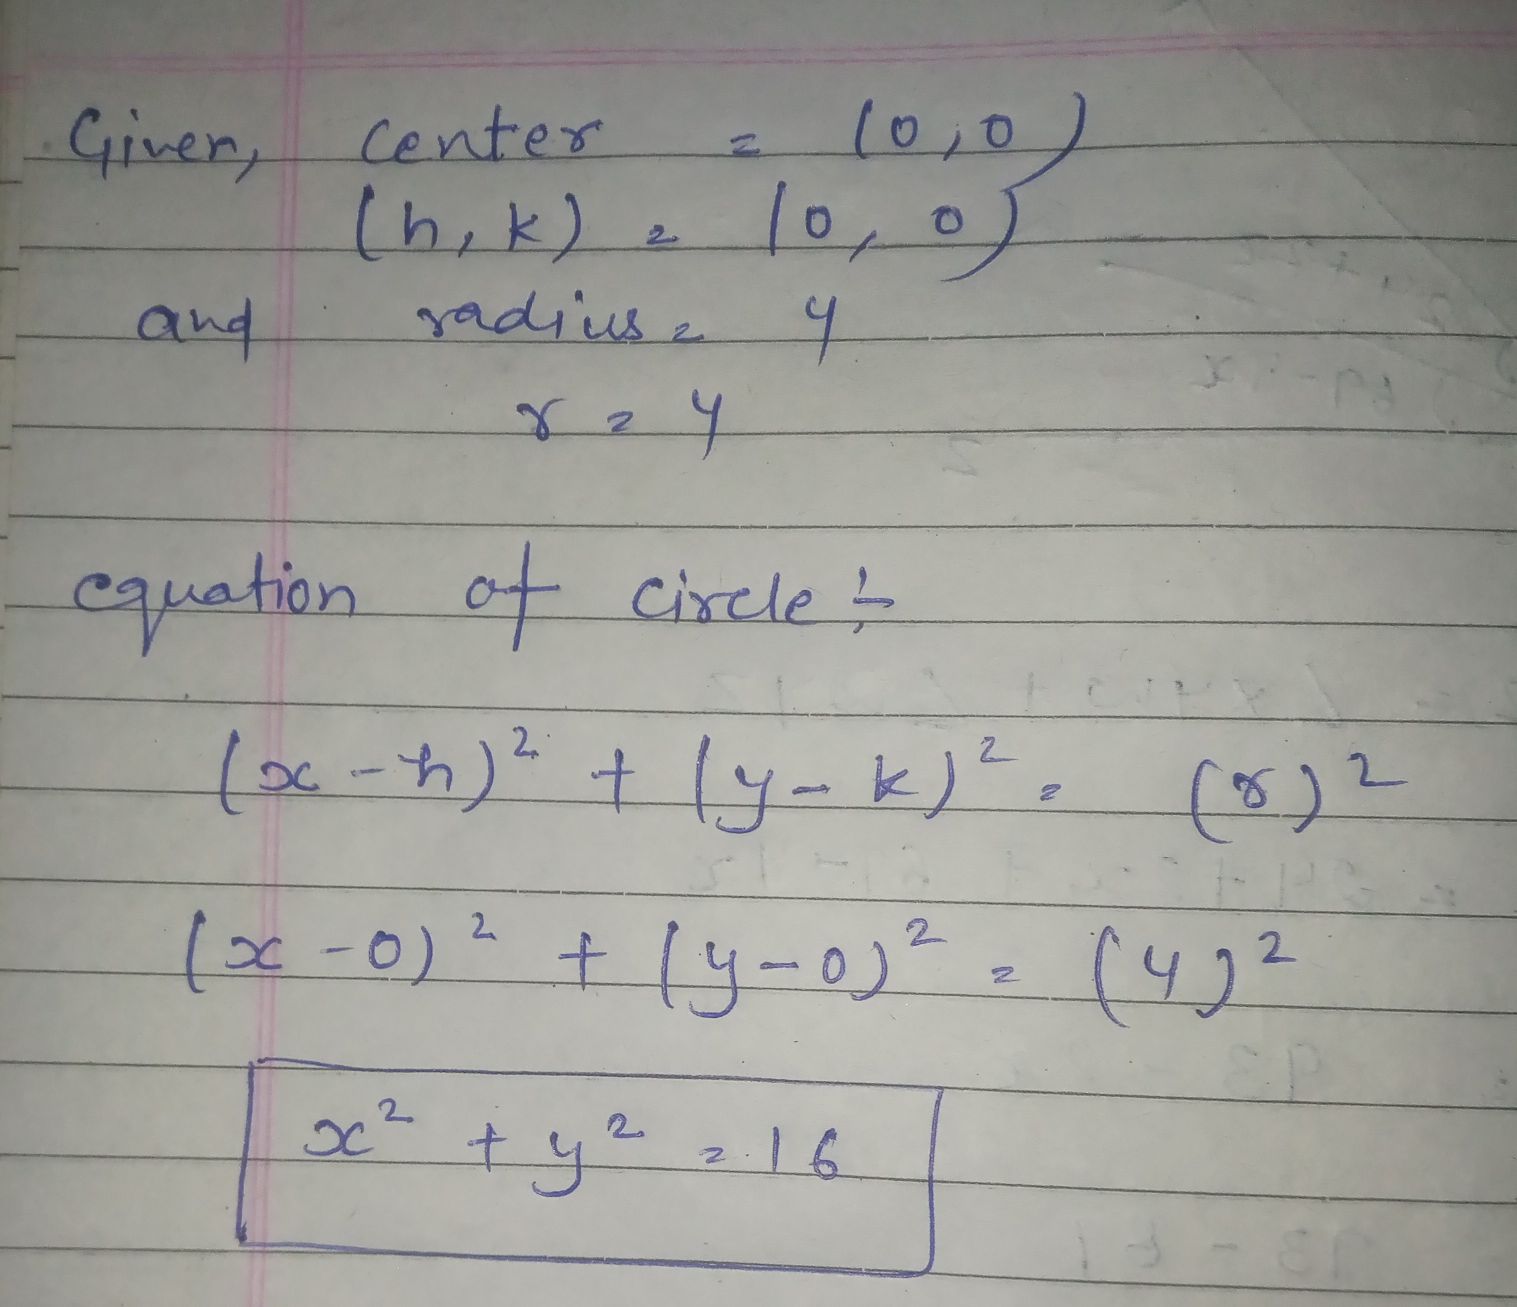 Given, center = (0,0)
(h, k) = (0, 0)
and radius = 4
r = 4
equation of circle :-
(x - h)² + (y - k)² = (r)²
(x - 0)² + (y - 0)² = (4)²
x² + y² = 16